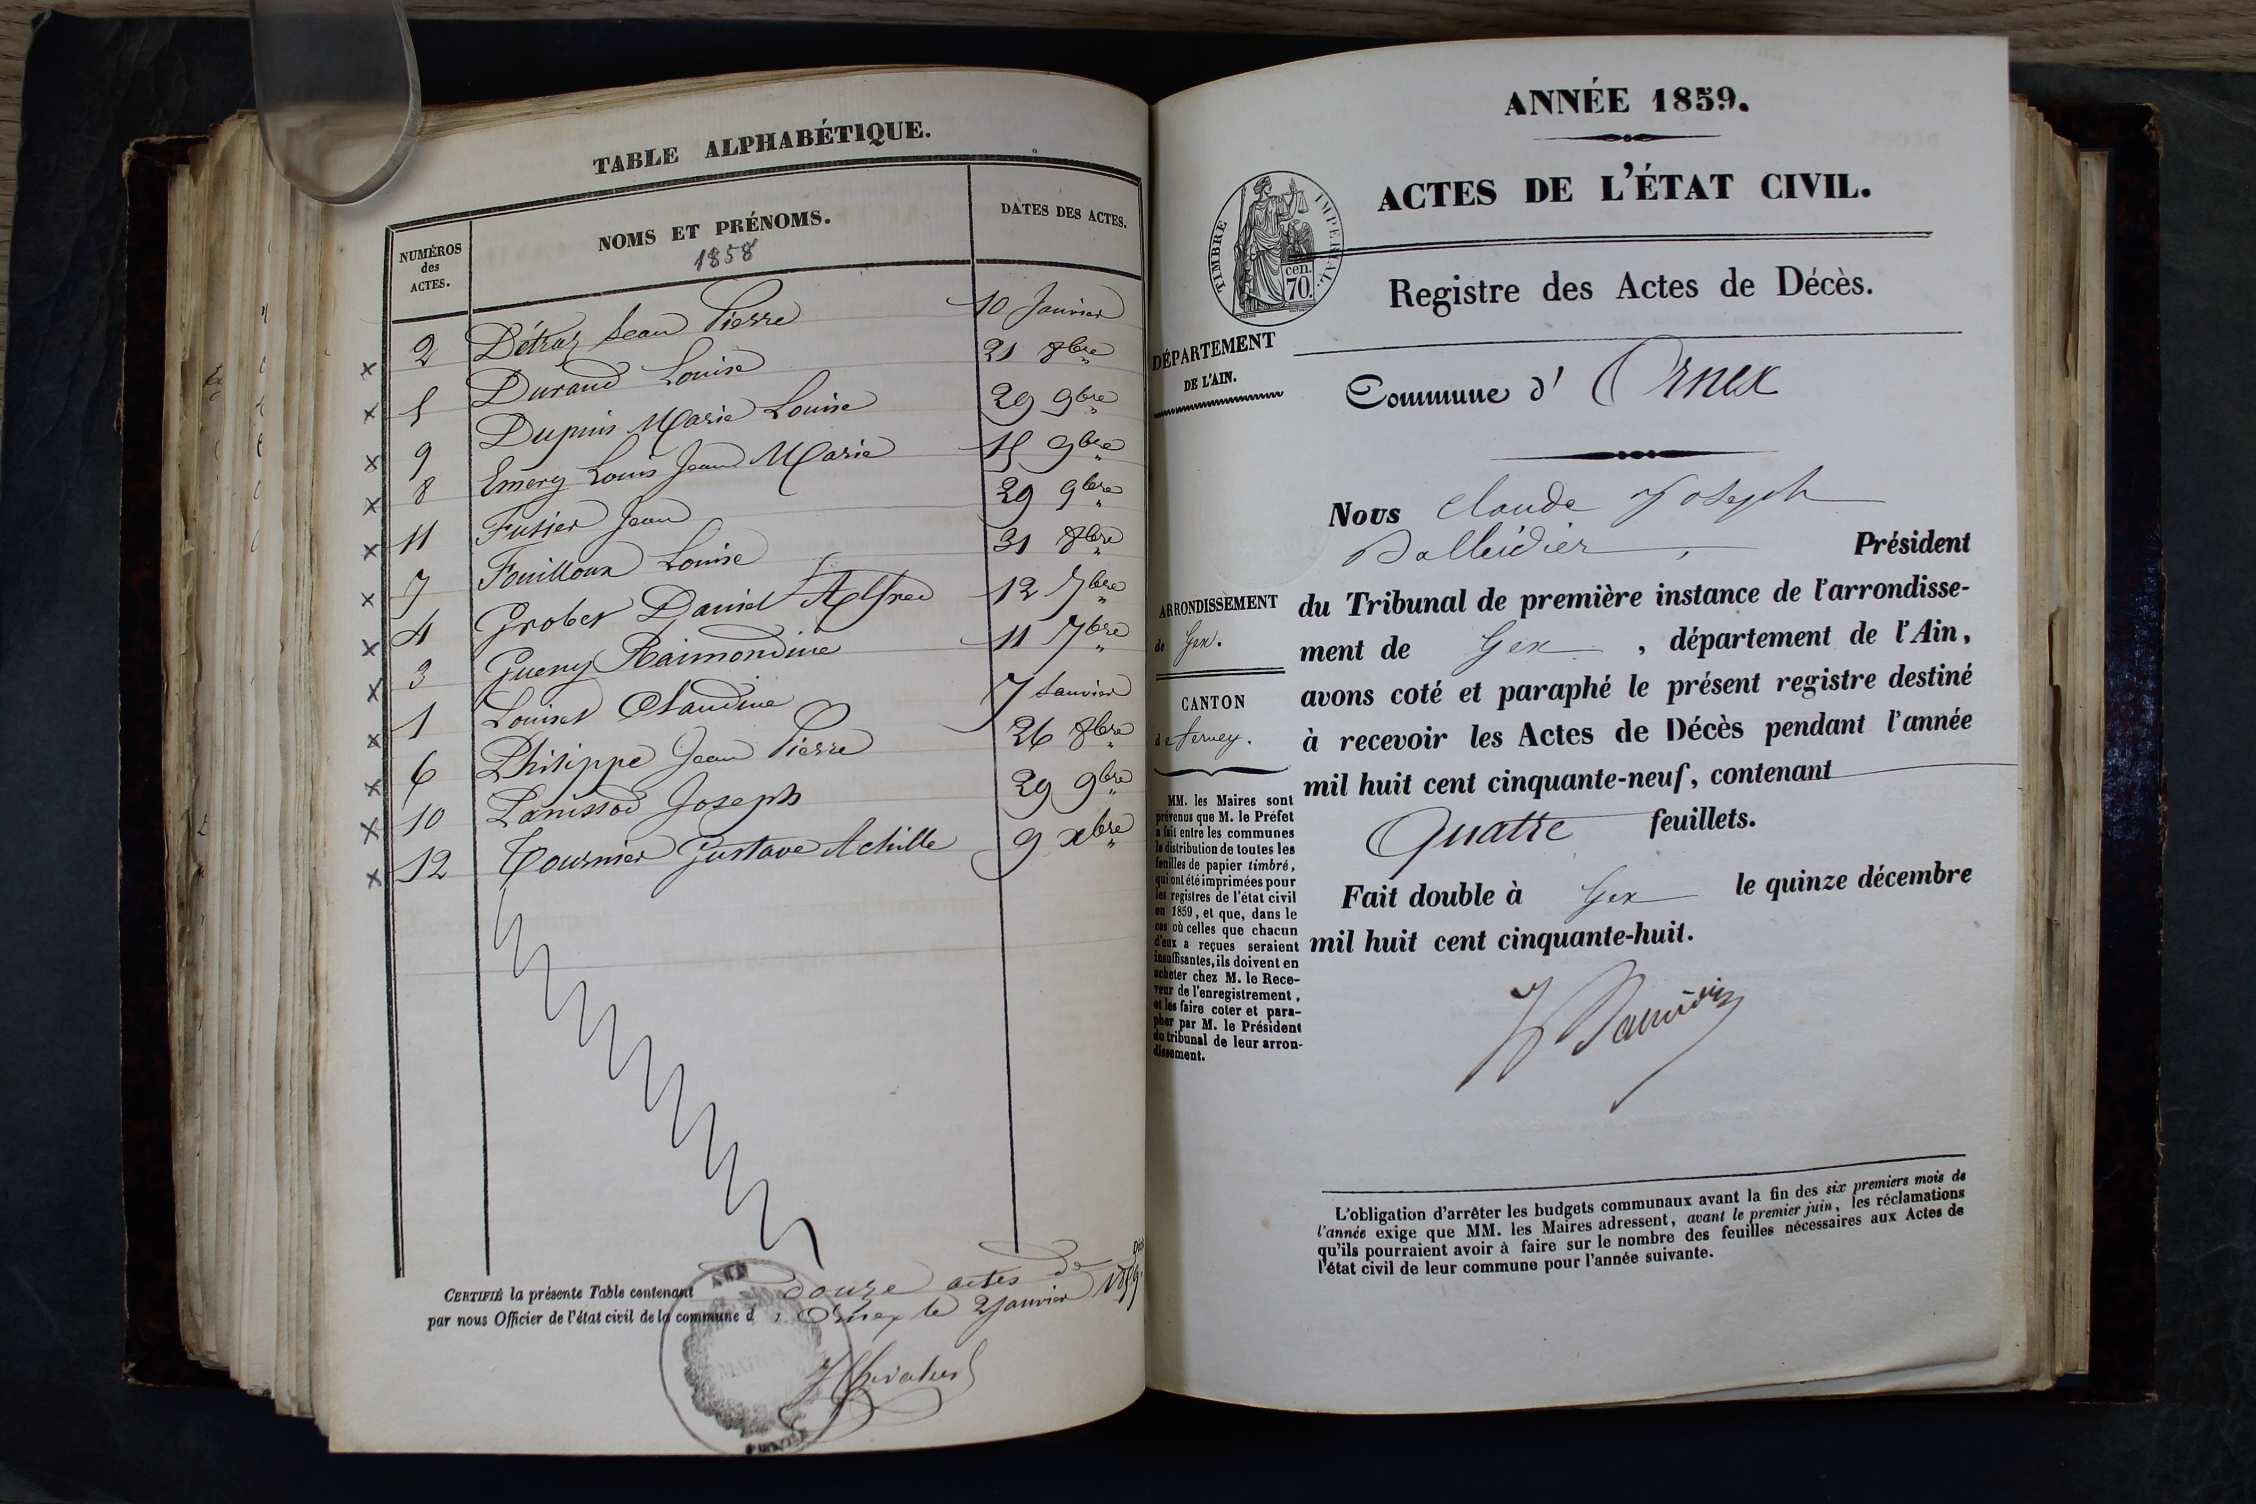 TABLE ALPHABÉTIQUE.
NUMÉROS
des
ACTES.
NOMS ET PRÉNOMS.
1858
DATES DES ACTES.
2 Détraz Jean Pierre 10 Janvier
5 Durand Louise 21 8bre
9 Dupuis Marie Louise 29 9bre
8 Emery Louis Jean Marie 15 9bre
11 Fusier Jean 29 9bre
7 Fouilloux Louise 31 8bre
4 Grobet Daniel Alfred 12 7bre
3 Gueny Raimondine 11 7bre
1 Louiset Claudine 7 Janvier
6 Philippe Jean Pierre 26 8bre
10 Panissod Joseph 29 9bre
12 Tournier Gustave Achille 9 xbre
CERTIFIÉ la présente Table contenant douze actes de
par nous Officier de l'état civil de la commune d' Ornex le 2 janvier 1859.
AIN
ANNÉE 1859.
ACTES DE L'ÉTAT CIVIL.
TIMBRE IMPERIAL.
cen.
70.
Registre des Actes de Décès.
DÉPARTEMENT
DE L'AIN.
Commune d' Ornex
Nous Claude Joseph
Président
du Tribunal de première instance de l'arrondisse-
ment de Gex , département de l'Ain,
avons coté et paraphé le présent registre destiné
à recevoir les Actes de Décès pendant l'année
mil huit cent cinquante-neuf, contenant
Quatre feuillets.
Fait double à Gex le quinze décembre
mil huit cent cinquante-huit.
ARRONDISSEMENT
de Gex.
CANTON
de Ferney.
MM. les Maires sont
prévenus que M. le Préfet
a fait entre les communes
la distribution de toutes les
feuilles de papier timbré,
qui ont été imprimées pour
les registres de l'état civil
en 1859, et que, dans le
cas où celles que chacun
d'eux a reçues seraient
insuffisantes, ils doivent en
acheter chez M. le Rece-
veur de l'enregistrement,
et les faire coter et para-
pher par M. le Président
du tribunal de leur arron-
dissement.
L'obligation d'arrêter les budgets communaux avant la fin des six premiers mois de
l'année exige que MM. les Maires adressent, avant le premier juin, les réclamations
qu'ils pourraient avoir à faire sur le nombre des feuilles nécessaires aux Actes de
l'état civil de leur commune pour l'année suivante.